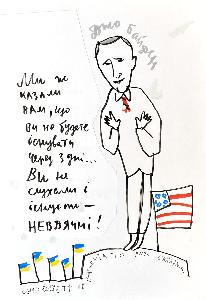 Джо Байден
Ми ж
казали
вам, що
ви не будете
існувати
через 3 дні...
Ви не
слухали і
існуєте —
НЕВДЯЧНІ!